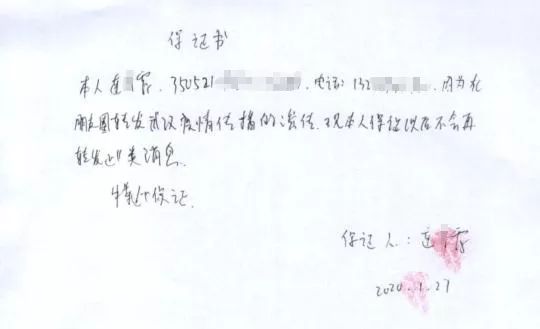 保证书
本人连 霖,350521 ,电话:132 ,因为在
朋友圈转发武汉疫情传播的 传,现本人保证以后不会再
转发此类消息.
特此保证.
保证人:连 霖
2020.1.27